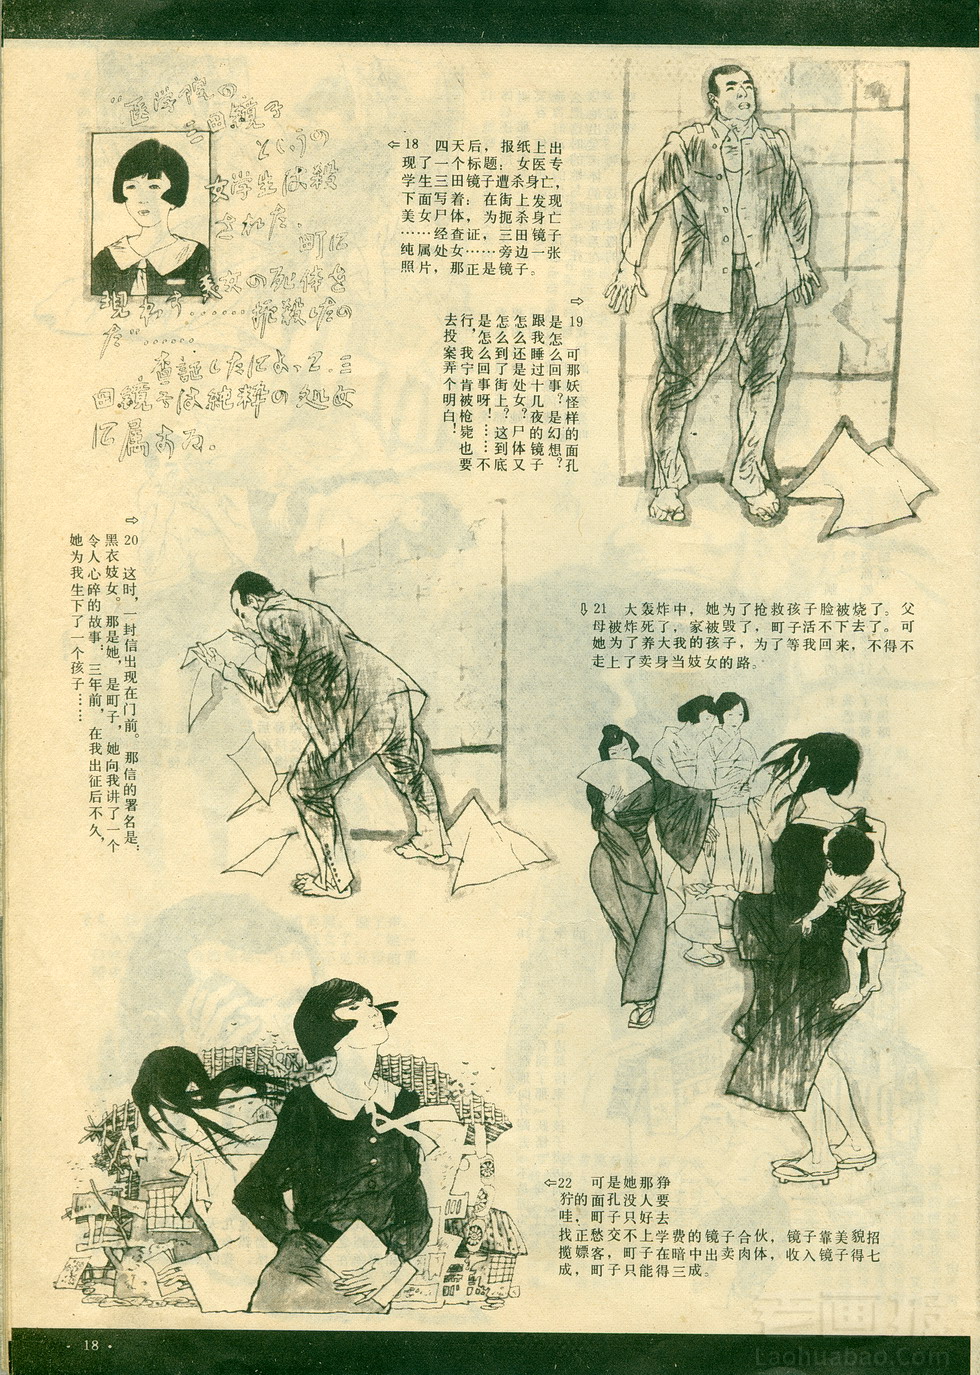 “医学院の
三田鏡子
というの
女学生は殺
された。
町に
美女の死体を
現わす……扼殺したの
だ”……
査証したによって、三
田鏡子は純粋の処女
に属する。
⇦18 四天后，报纸上出
现了一个标题：女医专
学生三田镜子遭杀身亡，
下面写着：在街上发现
美女尸体，为扼杀身亡
……经查证，三田镜子
纯属处女……旁边一张
照片，那正是镜子。
⇨
19 可那妖怪样的面孔
是怎么回事？是幻想？
跟我睡过十几夜的镜子
怎么还是处女？尸体又
怎么到了街上？这到底
是怎么回事呀！……不
行，我宁肯被枪毙也要
去投案弄个明白！
⇨
20 这时，一封信出现在门前。那信的署名是：
黑衣妓女。那是她，是町子，她向我讲了一个
令人心碎的故事：三年前，在我出征后不久，
她为我生下了一个孩子……
⇩21 大轰炸中，她为了抢救孩子脸被烧了。父
母被炸死了，家被毁了，町子活不下去了。可
她为了养大我的孩子，为了等我回来，不得不
走上了卖身当妓女的路。
⇦22 可是她那狰
狞的面孔没人要
哇，町子只好去
找正愁交不上学费的镜子合伙，镜子靠美貌招
揽嫖客，町子在暗中出卖肉体，收入镜子得七
成，町子只能得三成。
· 18 ·
老画报
Laohuabao.Com